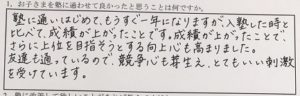 1、お子さまを塾に通わせて良かったと思うことは何ですか。
塾に通いはじめて、もうすぐ一年になりますが、入塾した時と
比べて、成績が上がったことです。成績が上がったことで、
さらに上位を目指そうとする向上心も高まりました。
友達も通っているので、競争心も芽生え、とてもいい刺激
を受けています。